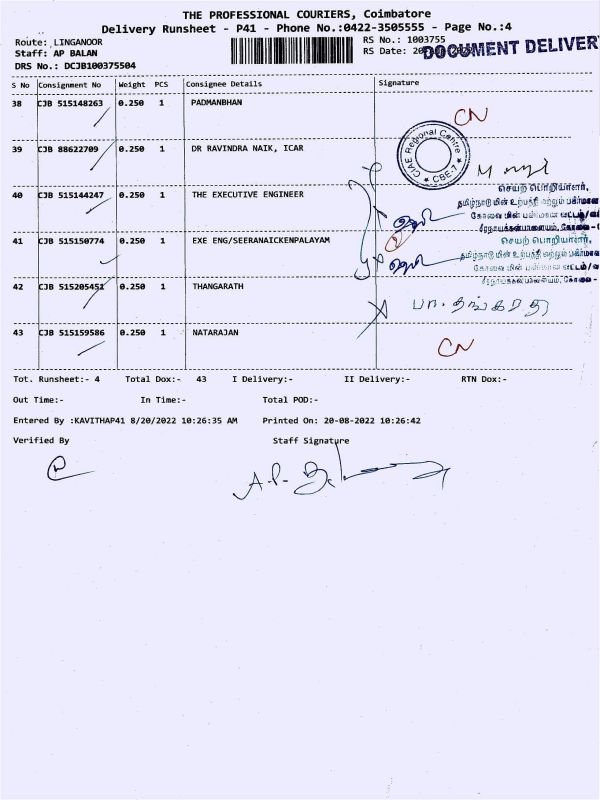 THE PROFESSIONAL COURIERS, Coimbatore
Delivery Runsheet - P41 - Phone No.:0422-3505555 - Page No.:4
Route: LINGANOOR
RS No.: 1003755
Staff: AP BALAN
RS Date: 20
DOCUMENT DELIVER
DRS No.: DCJB100375504
S No Consignment No Weight PCS Consignee Details Signature
38 CJB 515148263 0.250 1 PADMANBHAN CN
39 CJB 88622709 0.250 1 DR RAVINDRA NAIK, ICAR
CIAE Regional Centre
★ CBE-7 ★
40 CJB 515144247 0.250 1 THE EXECUTIVE ENGINEER
செயற் பொறியாளர்,
தமிழ்நாடு மின் உற்பத்தி மற்றும் பகிர்மான
கோவை மின் பகிர்மான வட்டம்
சீரநாயக்கன்பாளையம், கோவை -
41 CJB 515150774 0.250 1 EXE ENG/SEERANAICKENPALAYAM
செயற் பொறியாளர்,
தமிழ்நாடு மின் உற்பத்தி மற்றும் பகிர்மான
கோவை மின் பகிர்மான வட்டம்
சீரநாயக்கன்பாளையம், கோவை -
42 CJB 515205451 0.250 1 THANGARATH
பா. தங்கரத
43 CJB 515159586 0.250 1 NATARAJAN CN
Tot. Runsheet:- 4 Total Dox:- 43 I Delivery:- II Delivery:- RTN Dox:-
Out Time:- In Time:- Total POD:-
Entered By :KAVITHAP41 8/20/2022 10:26:35 AM Printed On: 20-08-2022 10:26:42
Verified By Staff Signature
A.P.